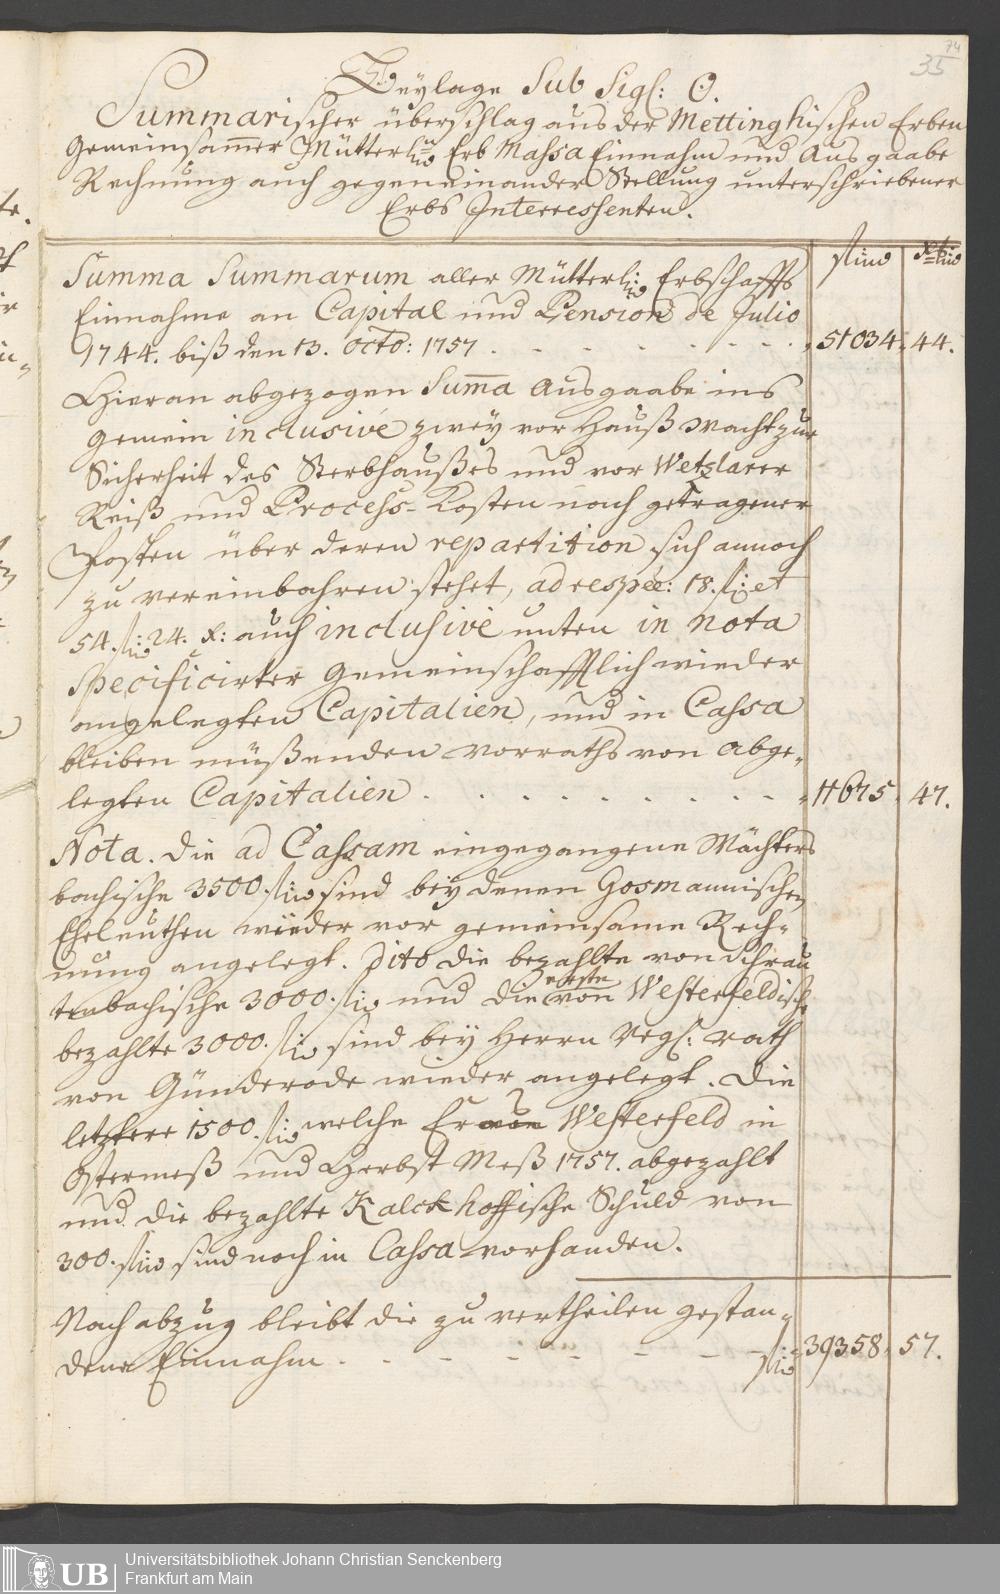 74
35
Beylage Sub Sig: O.
Summarischer überschlag aus der Mettinghischen Erben
Gemeinsamer Mütterl: Erb Massa Einnahm und Ausgaabe
Rechnung auch gegeneinander Stellung unterschriebener
Erbs Interressenten.
Summa Summarum aller Mütterl: Erbschaffts
Einnahme an Capital und Pension de Julio
1744. biß den 13. octo: 1757. 51034. 44.
Hieran abgezogen Summa Ausgaabe ins
gemein inclusivé zwey vor Hauß Wacht zur
Sicherheit des Sterbhaußes und vor Wetzlarer
Reiß und Process-Kosten noch getragener
Posten über deren repartition sich annoch
zu vereinbahren stehet, ad respée: 18. fl: et
54. fl: 24. x: auch inclusivé unten in nota
specificirter Gemeinschafftlich wieder
angelegten Capitalien, und in Cassa
bleiben müßenden vorraths von abge-
legten Capitalien. 11675. 47.
Nota. Die ad Cassam eingegangene Mächters
bachische 3500. fl: sind bey denen Gosmannischen
Eheleuthen wieder vor gemeinsame Rech-
nung angelegt. Dito die bezahlte von Schrau
tenbachische 3000. fl: und die erste von Westerfeldische
bezahlte 3000. fl: sind bey Herrn Reg: rath
von Günderode wieder angelegt. Die
letztere 1500. fl: welche Er von Westerfeld in
Ostermeß und Herbst Meß 1757. abgezahlt
und die bezahlte Kalckhoffische Schuld von
300. fl: sind noch in Cassa vorhanden.
Nach abzug bleibt die zu vertheilen gestan-
dene Einnahm. fl: 39358. 57.
UB Universitätsbibliothek Johann Christian Senckenberg
Frankfurt am Main